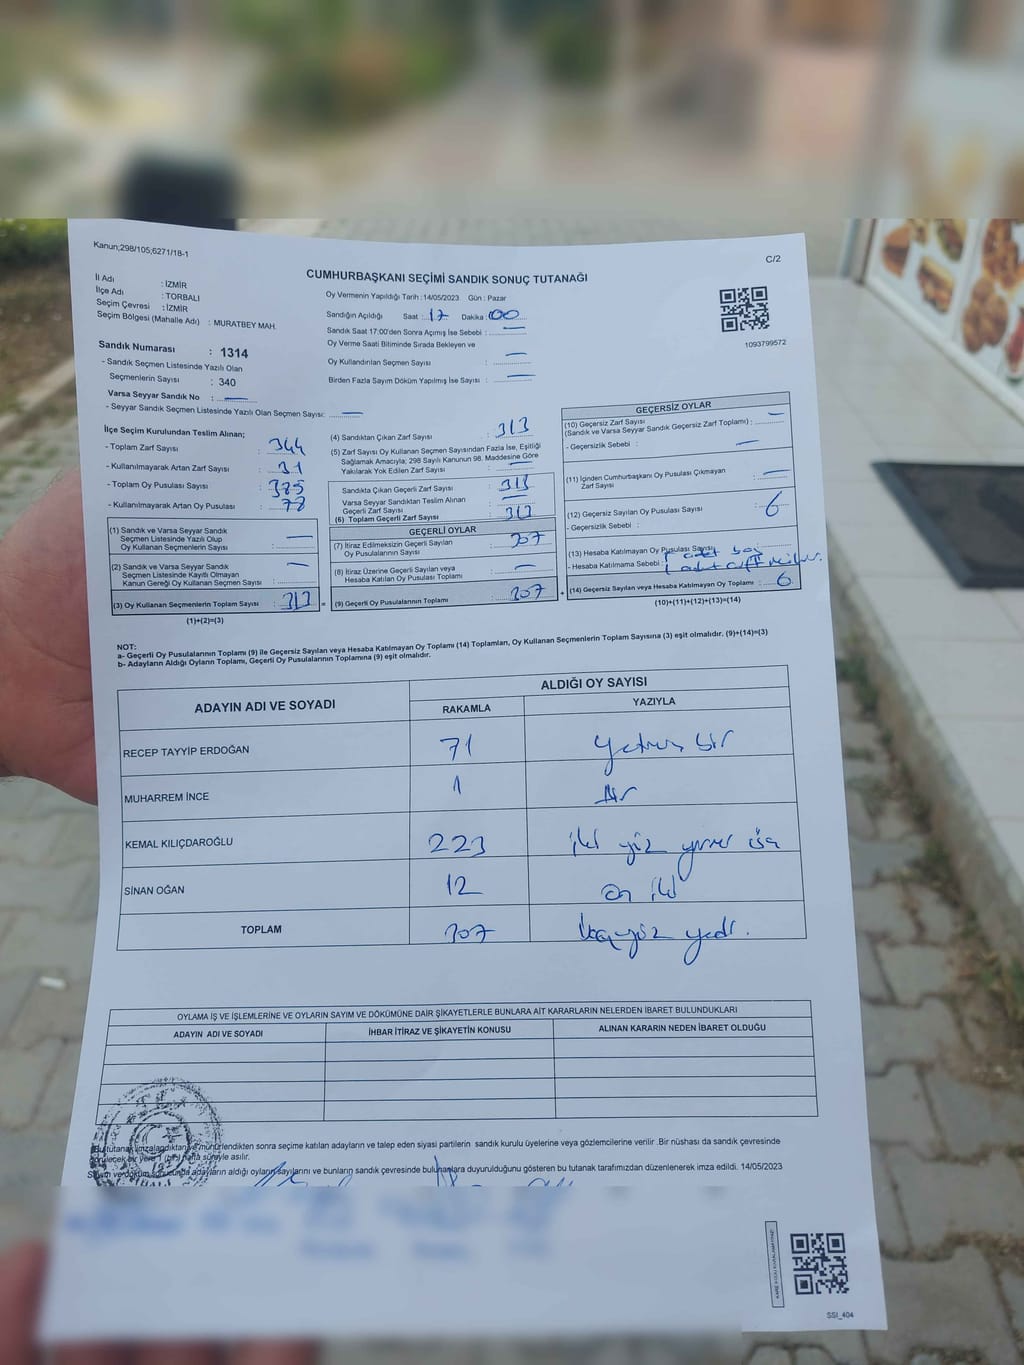 Kanun;298/105;6271/18-1
C/2
CUMHURBAŞKANI SEÇİMİ SANDIK SONUÇ TUTANAĞI
İl Adı : İZMİR
İlçe Adı : TORBALI
Seçim Çevresi : İZMİR
Seçim Bölgesi (Mahalle Adı) : MURATBEY MAH.
Sandık Numarası : 1314
- Sandık Seçmen Listesinde Yazılı Olan
Seçmenlerin Sayısı : 340
Varsa Seyyar Sandık No : —
- Seyyar Sandık Seçmen Listesinde Yazılı Olan Seçmen Sayısı: —
Oy Vermenin Yapıldığı Tarih : 14/05/2023 Gün : Pazar
Sandığın Açıldığı Saat : 17 Dakika : 00
Sandık Saat 17:00'den Sonra Açımış İse Sebebi : —
Oy Verme Saati Bitiminde Sırada Bekleyen ve
Oy Kullandırılan Seçmen Sayısı : —
Birden Fazla Sayım Döküm Yapılmış İse Sayısı : —
1093799572
İlçe Seçim Kurulundan Teslim Alınan;
- Toplam Zarf Sayısı : 344
- Kullanılmayarak Artan Zarf Sayısı : 31
- Toplam Oy Pusulası Sayısı : 385
- Kullanılmayarak Artan Oy Pusulası : 72
(1) Sandık ve Varsa Seyyar Sandık
Seçmen Listesinde Yazılı Olup
Oy Kullanan Seçmenlerin Sayısı : —
(2) Sandık ve Varsa Seyyar Sandık
Seçmen Listesinde Kayıtlı Olmayan
Kanun Gereği Oy Kullanan Seçmen Sayısı : —
(3) Oy Kullanan Seçmenlerin Toplam Sayısı : 313
(1)+(2)=(3)
(4) Sandıktan Çıkan Zarf Sayısı : 313
(5) Zarf Sayısı Oy Kullanan Seçmen Sayısından Fazla İse, Eşitliği
Sağlamak Amacıyla; 298 Sayılı Kanunun 98. Maddesine Göre
Yakılarak Yok Edilen Zarf Sayısı : —
Sandıkta Çıkan Geçerli Zarf Sayısı : 313
Varsa Seyyar Sandıktan Teslim Alınan
Geçerli Zarf Sayısı : —
(6) Toplam Geçerli Zarf Sayısı : 313
GEÇERLİ OYLAR
(7) İtiraz Edilmeksizin Geçerli Sayılan
Oy Pusulalarının Sayısı : 307
(8) İtiraz Üzerine Geçerli Sayılan veya
Hesaba Katılan Oy Pusulası Toplamı : —
= (9) Geçerli Oy Pusulalarının Toplamı : 307
GEÇERSİZ OYLAR
(10) Geçersiz Zarf Sayısı
(Sandık ve Varsa Seyyar Sandık Geçersiz Zarf Toplamı) : —
- Geçersizlik Sebebi : —
(11) İçinden Cumhurbaşkanı Oy Pusulası Çıkmayan
Zarf Sayısı : —
(12) Geçersiz Sayılan Oy Pusulası Sayısı : 6
- Geçersizlik Sebebi :
(13) Hesaba Katılmayan Oy Pusulası Sayısı
- Hesaba Katılmama Sebebi :
+ (14) Geçersiz Sayılan veya Hesaba Katılmayan Oy Toplamı : 6
(10)+(11)+(12)+(13)=(14)
NOT:
a- Geçerli Oy Pusulalarının Toplamı (9) ile Geçersiz Sayılan veya Hesaba Katılmayan Oy Toplamı (14) Toplamları, Oy Kullanan Seçmenlerin Toplam Sayısına (3) eşit olmalıdır. (9)+(14)=(3)
b- Adayların Aldığı Oyların Toplamı, Geçerli Oy Pusulalarının Toplamına (9) eşit olmalıdır.
ADAYIN ADI VE SOYADI
ALDIĞI OY SAYISI
RAKAMLA YAZIYLA
RECEP TAYYİP ERDOĞAN 71 yetmiş bir
MUHARREM İNCE 1 Bir
KEMAL KILIÇDAROĞLU 223 iki yüz yirmi üç
SİNAN OĞAN 12 on iki
TOPLAM 307 üçyüz yedi.
OYLAMA İŞ VE İŞLEMLERİNE VE OYLARIN SAYIM VE DÖKÜMÜNE DAİR ŞİKAYETLERLE BUNLARA AİT KARARLARIN NELERDEN İBARET BULUNDUKLARI
ADAYIN ADI VE SOYADI İHBAR İTİRAZ VE ŞİKAYETİN KONUSU ALINAN KARARIN NEDEN İBARET OLDUĞU
Bu tutanak imzalandıktan ve mühürlendikten sonra seçime katılan adayların ve talep eden siyasi partilerin sandık kurulu üyelerine veya gözlemcilerine verilir .Bir nüshası da sandık çevresinde
görülecek bir yere 1 (bir) hafta süreyle asılır.
Sayım ve döküm sonucunda adayların aldığı oyların sayılarını ve bunların sandık çevresinde bulunanlara duyurulduğunu gösteren bu tutanak tarafımızdan düzenlenerek imza edildi. 14/05/2023
SSI_404